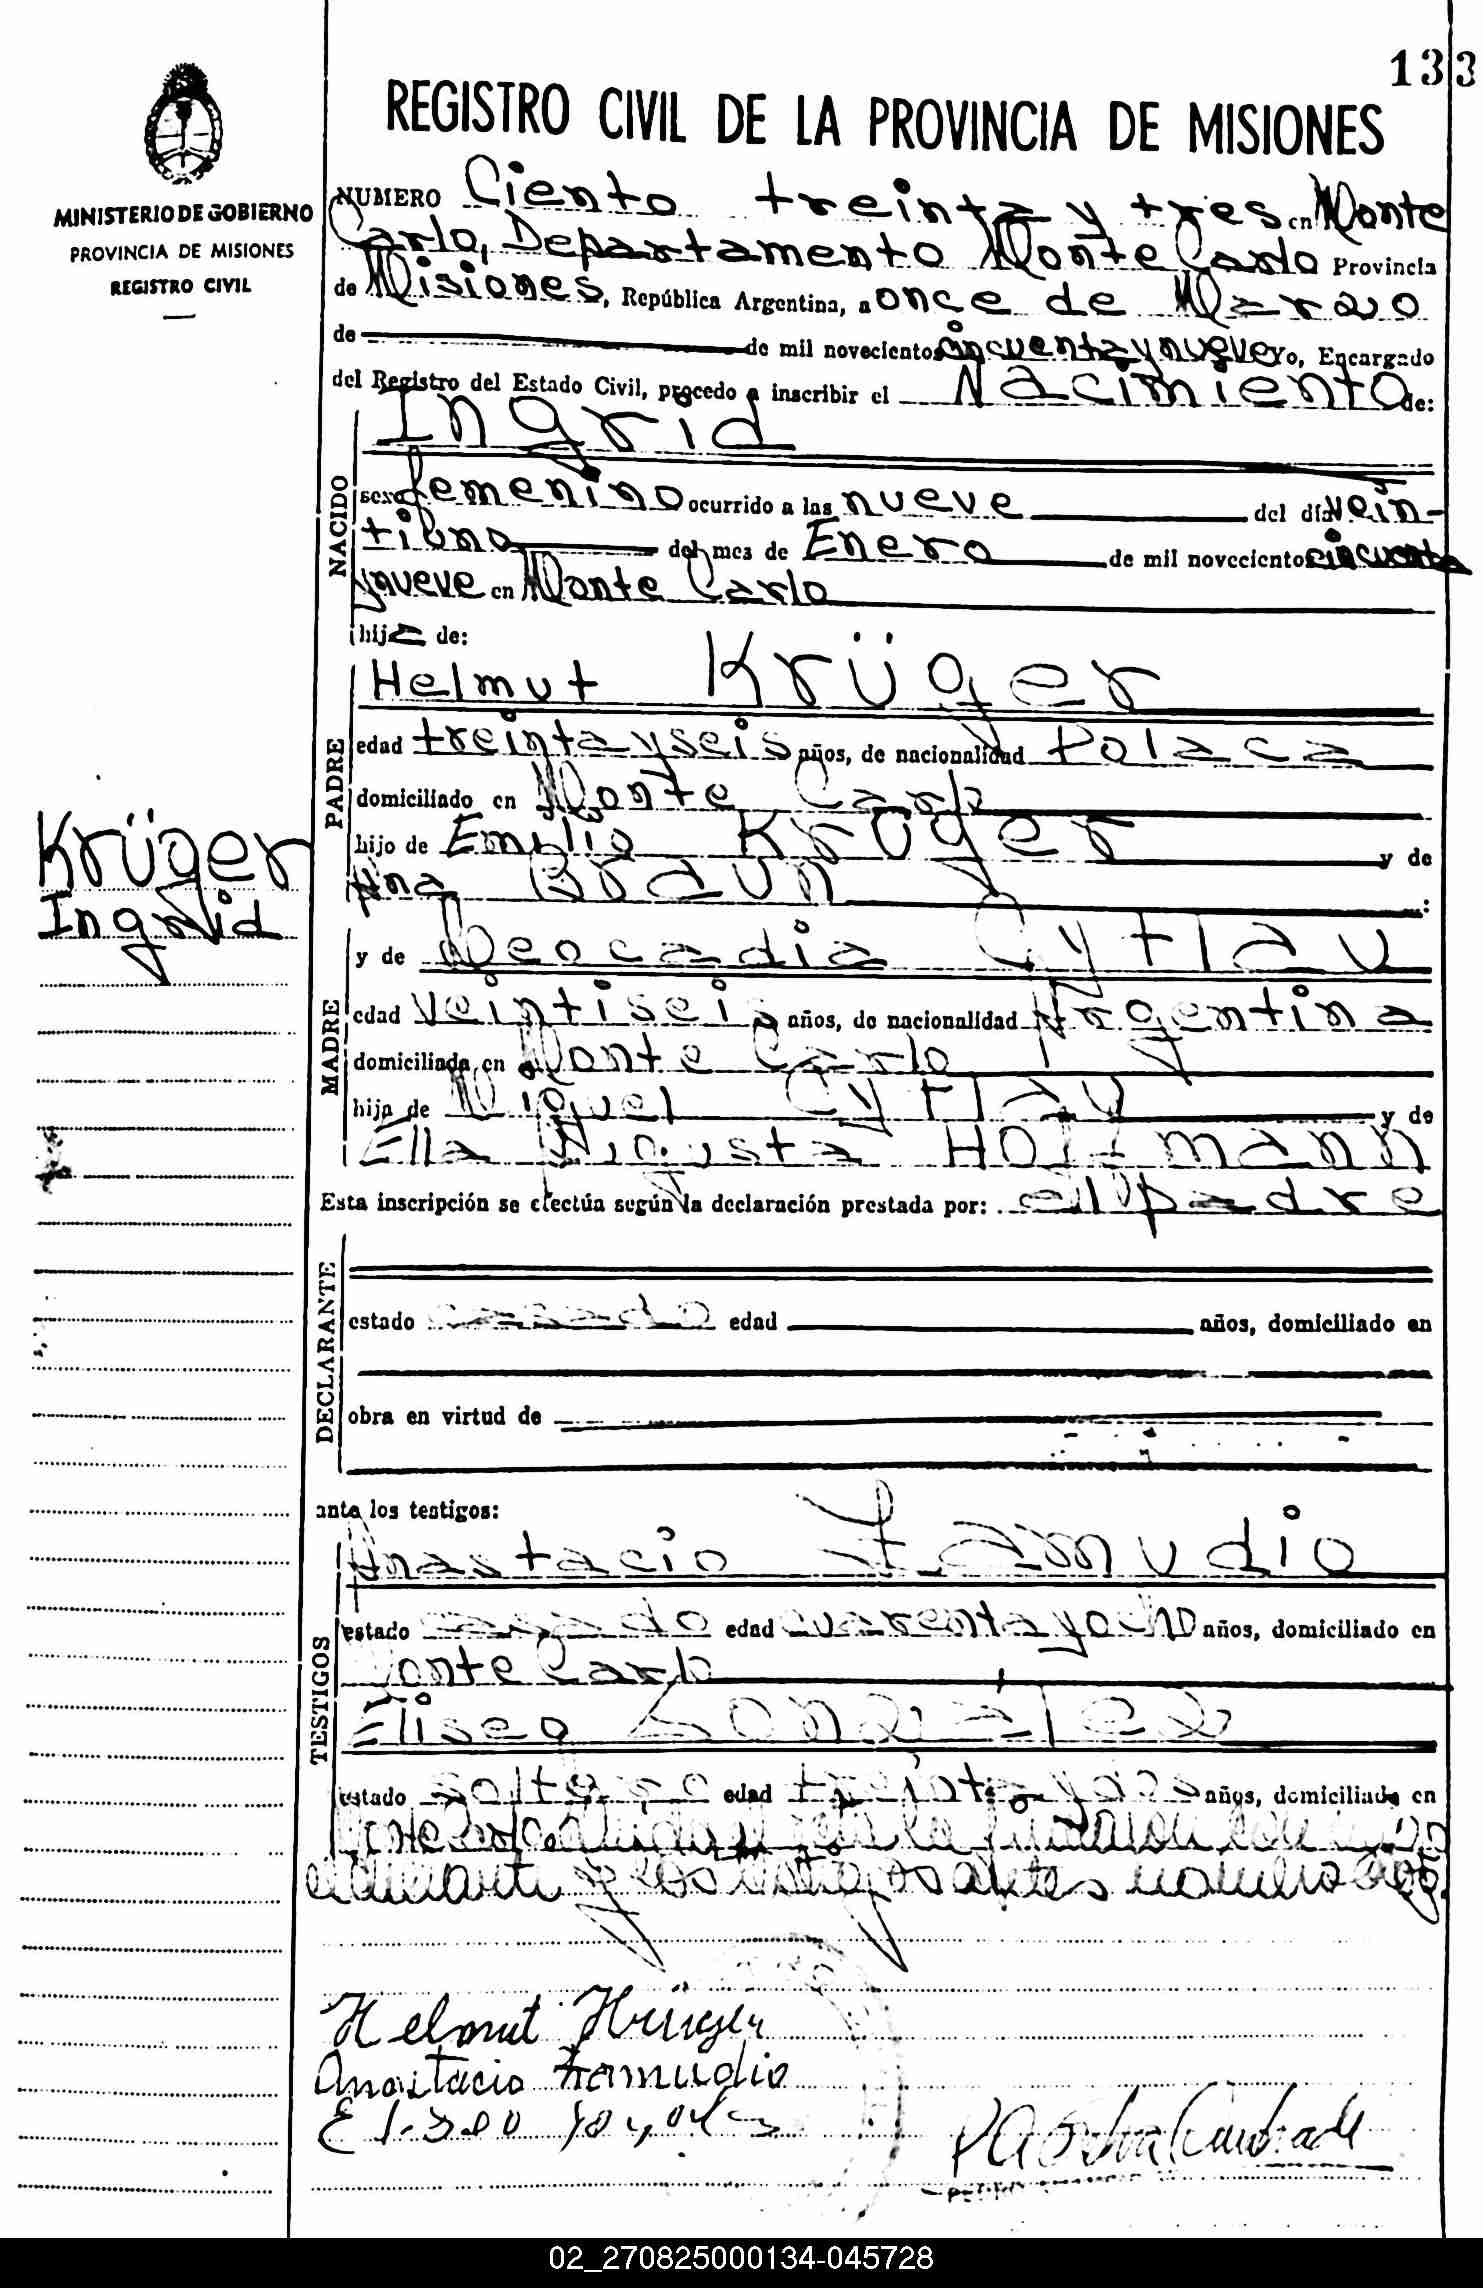 133
REGISTRO CIVIL DE LA PROVINCIA DE MISIONES
MINISTERIO DE GOBIERNO
PROVINCIA DE MISIONES
REGISTRO CIVIL
NUMERO Ciento treinta y tres en Monte
Carlo, Departamento Monte Carlo Provincia
de Misiones, República Argentina, a once de Marzo
de de mil novecientos cincuenta y nueve Yo, Encargado
del Registro del Estado Civil, procedo a inscribir el Nacimiento de:
NACIDO
Ingrid
sexo femenino ocurrido a las nueve del día vein-
tiuno del mes de Enero de mil novecientos cincuenta
y nueve en Monte Carlo
hija de:
PADRE
Helmut Krüger
edad treinta y seis años, de nacionalidad Polaca
domiciliado en Monte Carlo
hijo de Emilio Krüger y de
Ana Braun :
Krüger
Ingrid
MADRE
y de Leocadia Cytlau
edad veintiseis años, de nacionalidad Argentina
domiciliada en Monte Carlo
hija de Miguel Cytlau y de
Ella Augusta Hoffmann
Esta inscripción se efectúa según la declaración prestada por: el padre
DECLARANTE
estado casado edad años, domiciliado en
obra en virtud de
ante los testigos:
TESTIGOS
Anastacio Zamudio
estado casado edad cuarenta y ocho años, domiciliado en
Monte Carlo
Eliseo Gonzalez
estado soltero edad treinta y años, domiciliado en
Monte Carlo la
y los testigos antes
Helmut Krüger
Anastacio Zamudio
02_270825000134-045728